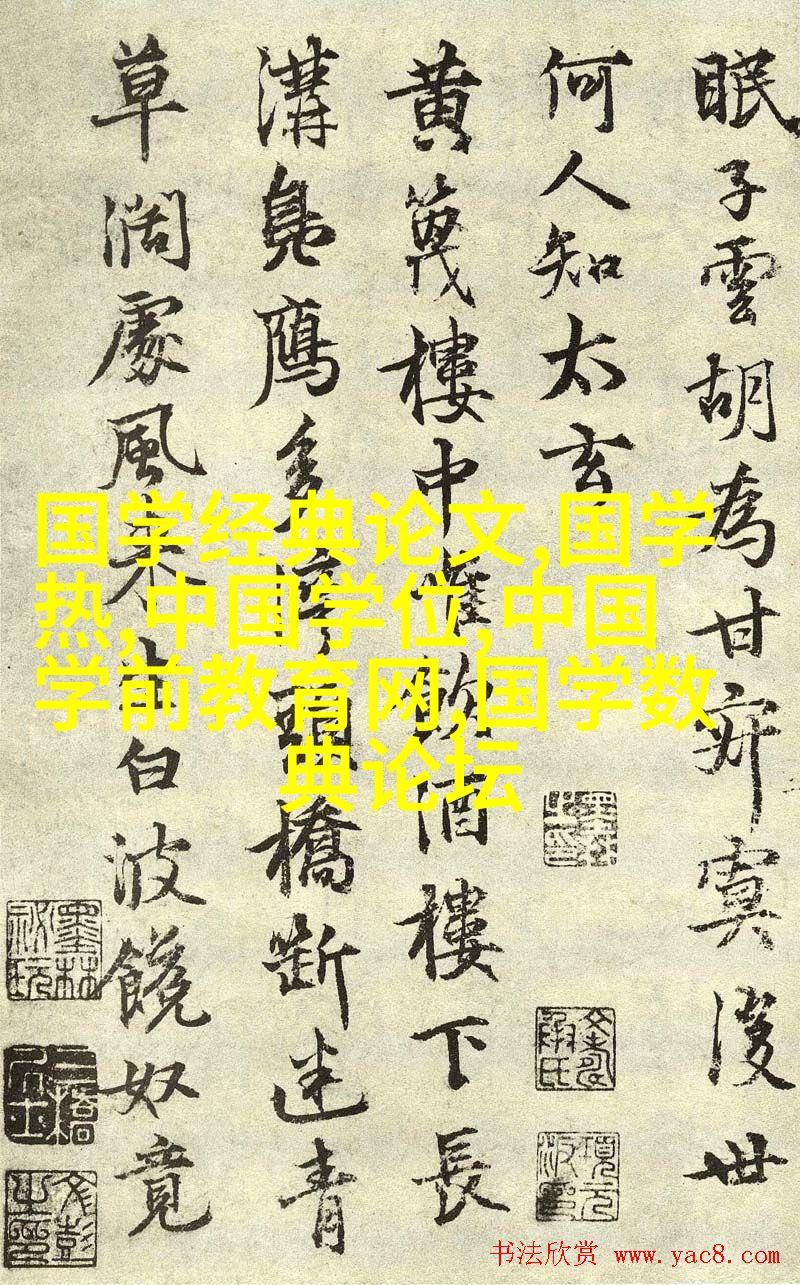 眠子雲胡為甘寂寞後世
何人知太玄
黄篾樓中唯飲酒樓下長
溝鳧鷹多斷橋斷迷青
草濶處風來生白波饒奴竟
国学经典论文,国学
热,中国学位,中国
学前教育网,国学数
典论坛
书法欣赏 www.yac8.com